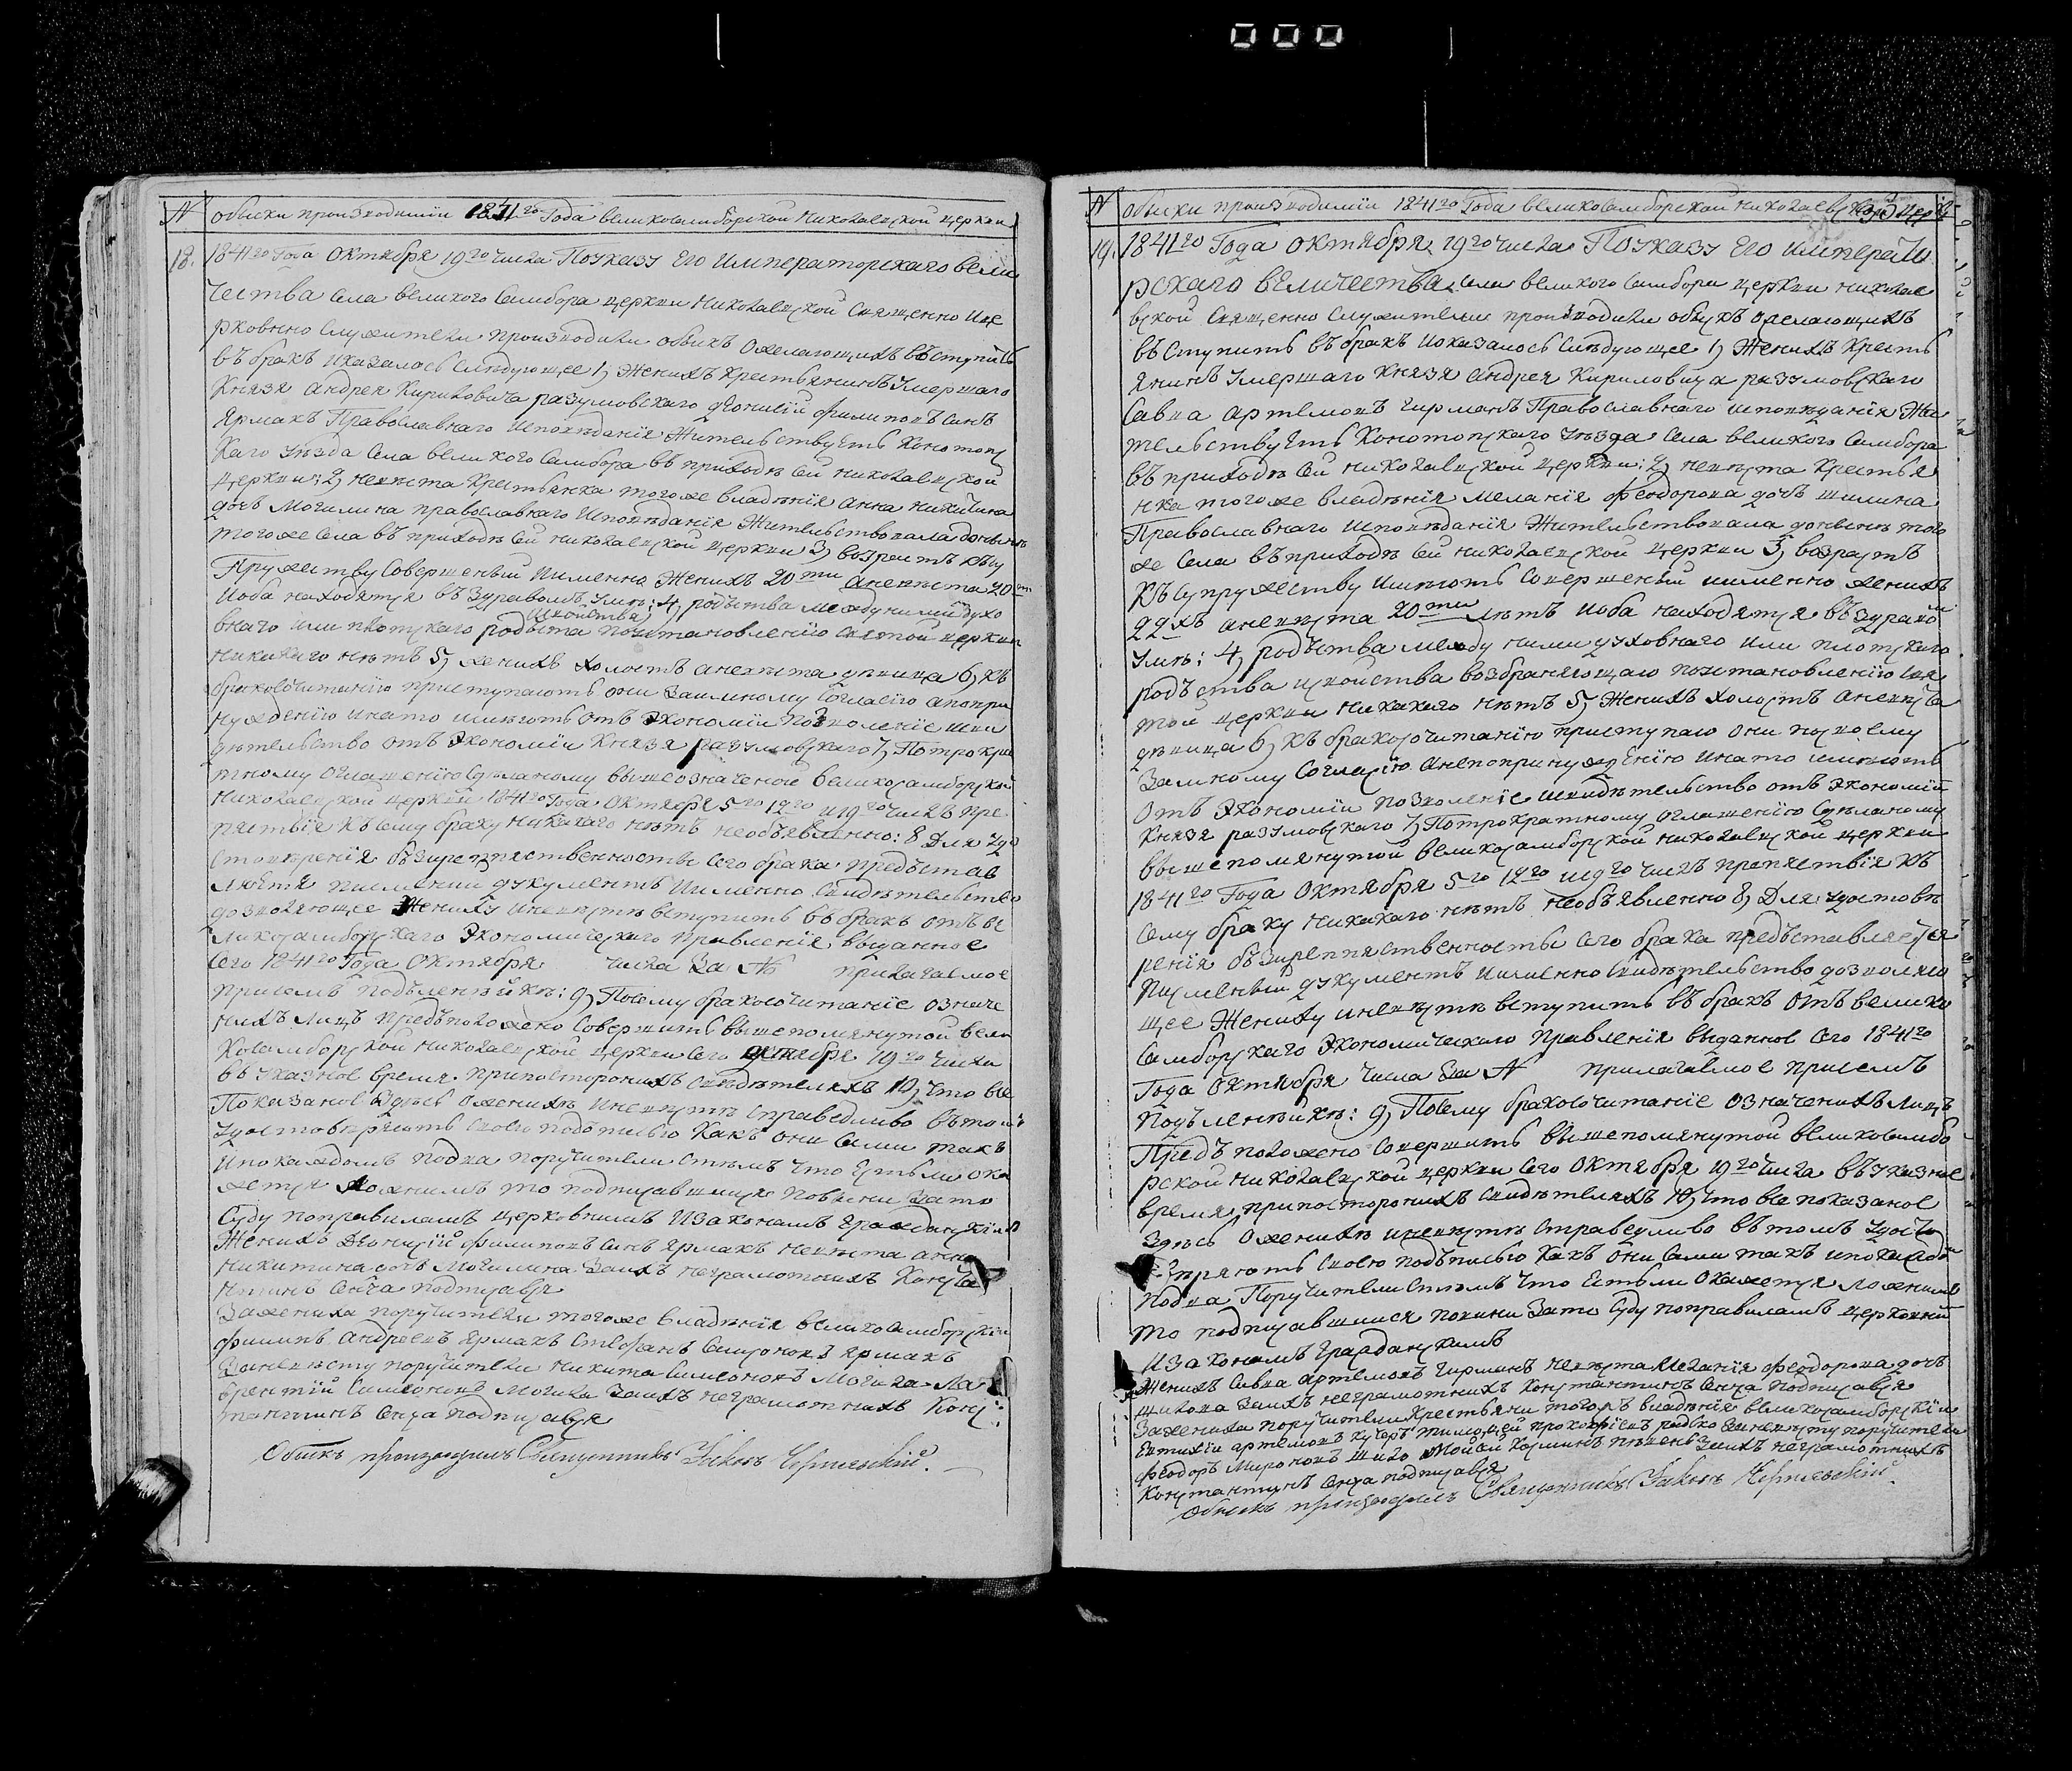 000
N обыски производимїи 1841го Года великосамборской Николаевской церкви
18. 1841го Года Октября 19го числа Поуказу Его Императорскаго вели
чества села великого Самбора церкви Николаевской Священно ице
рковнно служители производили обыкъ Ожелающихъ въступить
въ бракъ иказалось слѣдующее 1, Женихъ Крестьянинъ Умершаго
Князя Андрея Кириловича разумовскаго Дїонисїй филиповъ синъ
Ярмакъ Православнаго Исповѣданїя Жительствуетъ Конотопс
Каго Уѣзда Села великого Самбора въ приходѣ Сей Николаевской
церкви: 2, невѣста Крестьянка тогоже владѣнїя Анна Никитина
дочь Могилина православнаго Исповѣданїя Жительствовала донынѣ
тогоже Села въ приходѣ Сей Николаевской церкви 3, возрастъ къ су
Пружеству Совершеный Именно Женихъ 20ти Аневѣста 20ти
Иоба находятся въ здравомъ Умѣ: 4, родъства между ними духо
Исвойства
внаго или плотскаго родъства поустановленїю Святой церкви
никакаго нѣтъ 5, женихъ холостъ Аневѣста дѣвица 6, къ
бракосочитанїю приступаютъ они Заимному Согласїю апопри
нужденїю инато имѣютъ отъ Экономїи Позволенїе исви
дѣтельство отъ Экономїи Князя разумовскаго 7, Потрокра
тному Оглашенїю Сдѣланому вышеозначеной великосамборской
Николаевской церкви 1841го Года Октября 5го 12го и 19го числъ пре
пятствїя къ сему браку никакого нѣтъ необъявленно: 8 Для Удо
стовѣренїя бѣзпрепятственности сего брака предъстав
ляется писменый документъ Именно Свидѣтельство
дозволяющее Жениху иневѣстѣ вступить въ бракъ отъ ве
ликосамборскаго Экономическаго правленїя выданное
сего 1841го Года Октября числа За N прилагаемое
присемъ подъленейкѣ: 9, Посему бракосочитанїе означе
ныхъ лицъ предъположено Совершить вышепомянутой вели
косамборской Николаевской церкви сего Октября 19го числа
въ Указное время припостороныхъ свидѣтеляхъ 10, Что все
Показаное Здѣсь Оженихѣ Иневѣстѣ справедливо вътомъ
Удостовѣряютъ своею подъписью Какъ они сами такъ
Ипокаждомъ подва поручители стѣмъ что Естьли ока
жется ложнимъ то подписавшися повини Зато
Суду поправиламъ церковнимъ Изаконамъ гражданскїмъ
Женихъ Дїонисїй филиповъ синъ Ярмакъ невѣста Анна
Никитина дочь Могилина Заихъ неграмотныхъ Конста
нтинъ Сенча подписався
Зажениха поручители тогоже владѣнїя великосамборскїи
филипъ Андреевъ Ярмакъ Стефанъ Самсоновъ Ярмакъ
Заневѣсту поручители Никита Симеоновъ Могила Ла
врентїй Симеоновъ Могила Заихъ неграмотныхъ Конс
тантинъ Сенча подписався
Обыскъ производилъ Священникъ Іаковъ Чернявскїй.
N Обыски производимїи 1841го Года великосамборской николаевской церкви
19. 1841го Года Октября 19го числа Поуказу Его Императо
рскаго величества села великого Самбора церкви николае
вской Священно служители производили обыскъ Ожелающихъ
въступить въ бракъ Иоказалось слѣдующее 1, Женихъ Кресть
янинъ Умершаго Князя Андрея Кириловича разумовскаго
Савва Артемовъ Гирманъ Православнаго исповѣданїя Жи
тельствуетъ Конотопскаго Уѣзда Села великого Самбора
въ приходѣ Сей николаевской церкви: 2, невѣста Крестья
нка тогоже владѣнїя Меланїя феодорова дочь шилина
Православнаго исповѣданїя Жительствовала донынѣ того
же Села въприходѣ Сей николаевской церкви 3, возрастъ
къ супружеству Имѣютъ Совершеный именно женихъ
22хъ аневѣста 20ти лѣтъ Иоба находятся въ здравомъ
Умѣ: 4, родъства между ними духовнаго или плотскаго
родъства исвойства возбраняющаго поустановленїю Свя
той церкви никакаго нѣтъ 5, Женихъ холостъ Аневѣста
дѣвица 6, къ бракосочитанїю приступаю они посвоему
Заимному Согласїю Анепопринужденїю Инато имѣютъ
отъ Экономїи позволенїе исвидѣтельство отъ Экономїи
Князя разумовскаго 7, Потрократному оглашенїю Сдѣланому
вышепомянутой великосамборской николаевской церкви
1841го Года Октября 5го 12го и 19го числъ препятствїя къ
сему браку никакаго нѣтъ необъявленно 8, Для Удостовѣ
ренїя бѣзпрепятственности сего брака предъставляется
Писменый документъ Именно Свидѣтельство дозволяю
щее Жениху иневѣстѣ вступить въ бракъ отъ велико
Самборскаго Экономическаго правленїя выданное сего 1841го
Года Октября числа За N прилагаемое присемъ
подъленейкѣ: 9, Посему бракосочитанїе означеныхъ лицъ
Предъположено Совершить вышепомянутой великосамбо
рской николаевской церкви сего Октября 19го числа въ Указное
время припостороныхъ свидѣтеляхъ 10, Что все показаное
Здѣсь Оженихѣ иневѣстѣ справедливо вътомъ Удосто
вѣряютъ своею подъписью Какъ они сами такъ ипокаждомъ
подва Поручители стѣмъ что Естьли окажется ложнимъ
то подписавшися повини Зато Суду поправиламъ церковнимъ
Изаконамъ Гражданскимъ
Женихъ Савва Артемовъ Гирманъ невѣста Меланїя феодорова дочь
шилова Заихъ неграмотныхъ Константинъ Сенча подписався
Зажениха поручители Крестьяни тогожъ владѣнїя великосамборскїи
Евтихїи Артемовъ Кучеръ Тимофей прокофїевъ радько Заневѣсту поручители
феодоръ Мироновъ шило Мойсей Козминъ Заихъ неграмотныхъ
Константинъ Сенча подписався
Обыскъ производилъ Священникъ Іаковъ Чернявскїй